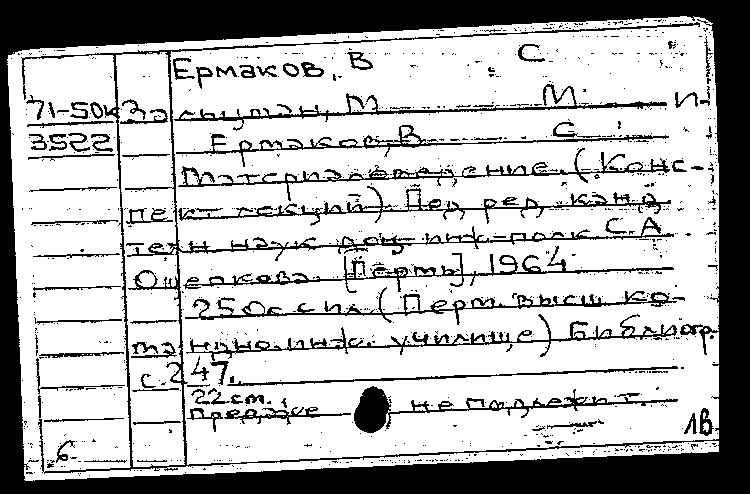 Ермаков, В С
71-50к Зальцман, М М и
3522 Ермаков, В С
Материаловедение. (Конс-
пект лекций) Под ред. канд
техн наук доц инж-полк С.А
Ощепкова. [Пермь], 1964
250с с ил (Перм. высш ко-
мандно.инж. училище) Библиогр.
с.247.
22 см.,
продаже не подлежит.
6 1В